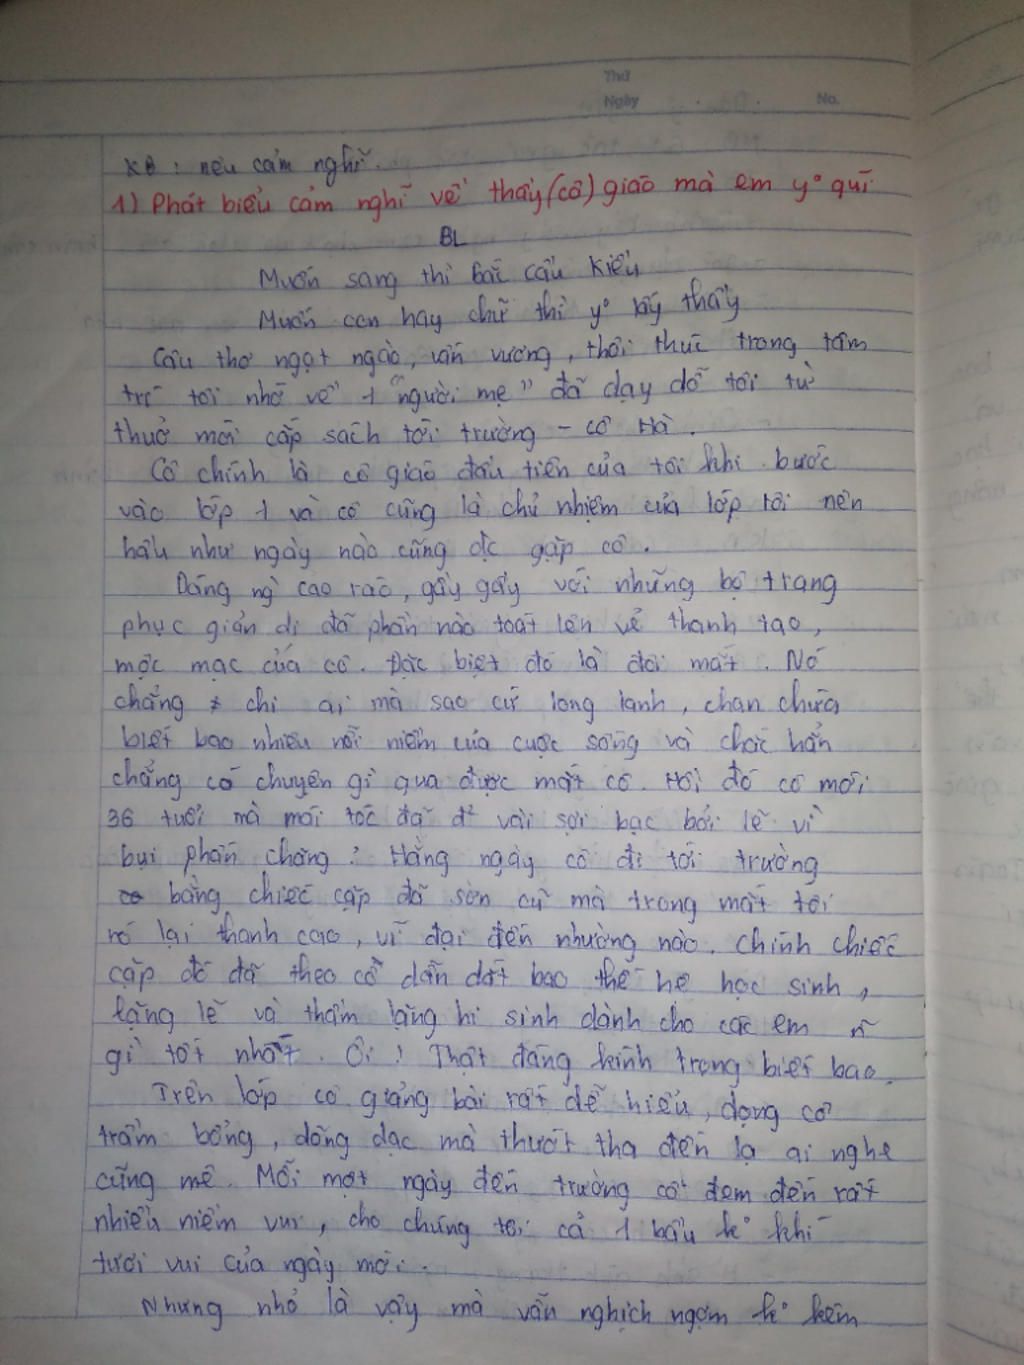 Thứ
Ngày No.
KB : nêu cảm nghĩ.
1) Phát biểu cảm nghĩ về thầy (cô) giáo mà em y° quí
BL
Muốn sang thì bắc cầu Kiều
Muốn con hay chữ thì y° lấy thầy
Câu thơ ngọt ngào, vấn vương, thôi thúc trong tâm
trí tôi nhớ về 1 "người mẹ" đã dạy dỗ tôi từ
thuở mới cắp sách tới trường - cô Hà.
Cô chính là cô giáo đầu tiên của tôi khi bước
vào lớp 1 và cô cũng là chủ nhiệm của lớp tôi nên
hầu như ngày nào cũng đc gặp cô.
Dáng ng` cao ráo, gầy gầy với những bộ trang
phục giản dị đã phần nào toát lên vẻ thanh tao,
mộc mạc của cô. Đặc biệt đó là đôi mắt. Nó
chẳng ≠ chi ai mà sao cứ long lanh, chan chứa
biết bao nhiêu nỗi niềm của cuộc sống và chắc hẳn
chẳng có chuyện gì qua được mắt cô. Hồi đó cô mới
36 tuổi mà mái tóc đã đ² vài sợi bạc bởi lẽ vì
bụi phấn chăng? Hằng ngày cô đi tới trường
bằng chiếc cặp đã sờn cũ mà trong mắt tôi
nó lại thanh cao, vĩ đại đến nhường nào. Chính chiếc
cặp đó đã theo cô dẫn dắt bao thế hệ học sinh,
lặng lẽ và thầm lặng hi sinh dành cho các em ~
gì tốt nhất. Ôi! Thật đáng kính trọng biết bao.
Trên lớp cô giảng bài rất dễ hiểu, giọng cô
trầm bổng, dõng dạc mà thướt tha đến lạ ai nghe
cũng mê. Mỗi một ngày đến trường cô đem đến rất
nhiều niềm vui, cho chúng tôi cả 1 bầu k° khí
tươi vui của ngày mới.
Nhưng nhỏ là vậy mà vẫn nghịch ngợm k° kém